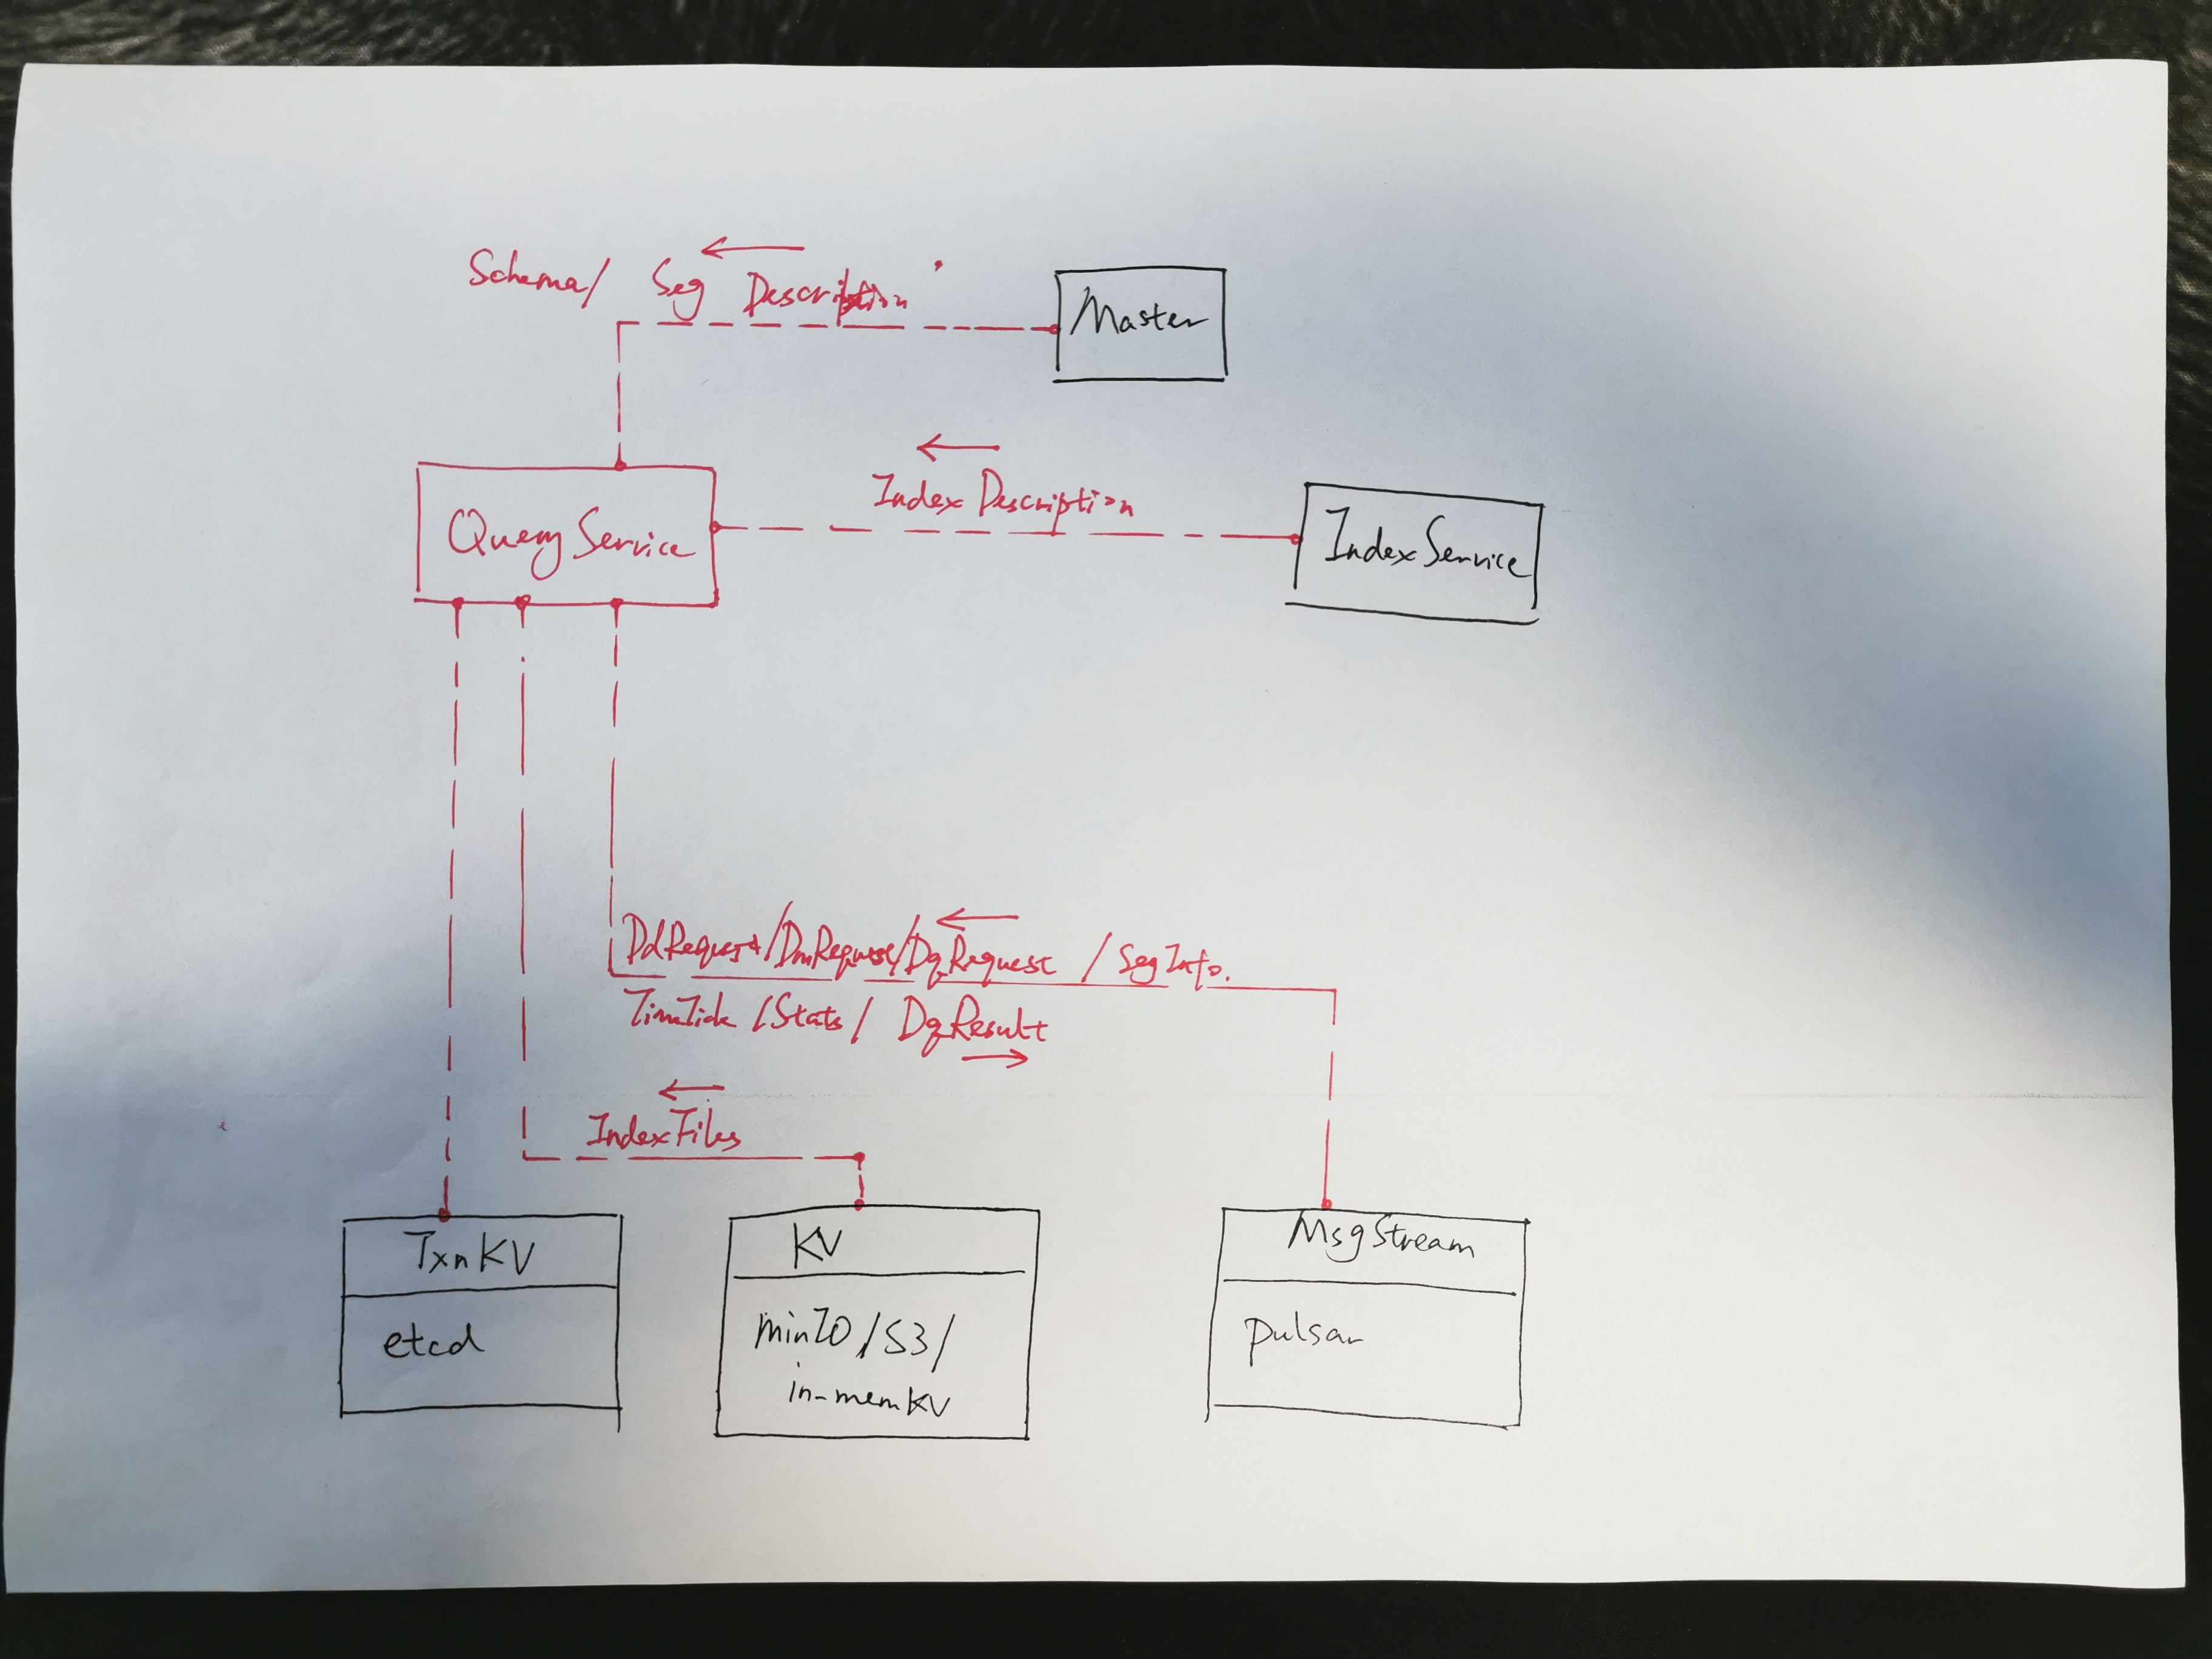 Schema/ Seg Description
Master
Index Description
Query Service
Index Service
DdRequest/DmRequest/DqRequest / SegInfo.
TimeTick /Stats/ DqResult
IndexFiles
TxnKV
KV
MsgStream
etcd
minIO/S3/
in-memKV
pulsar